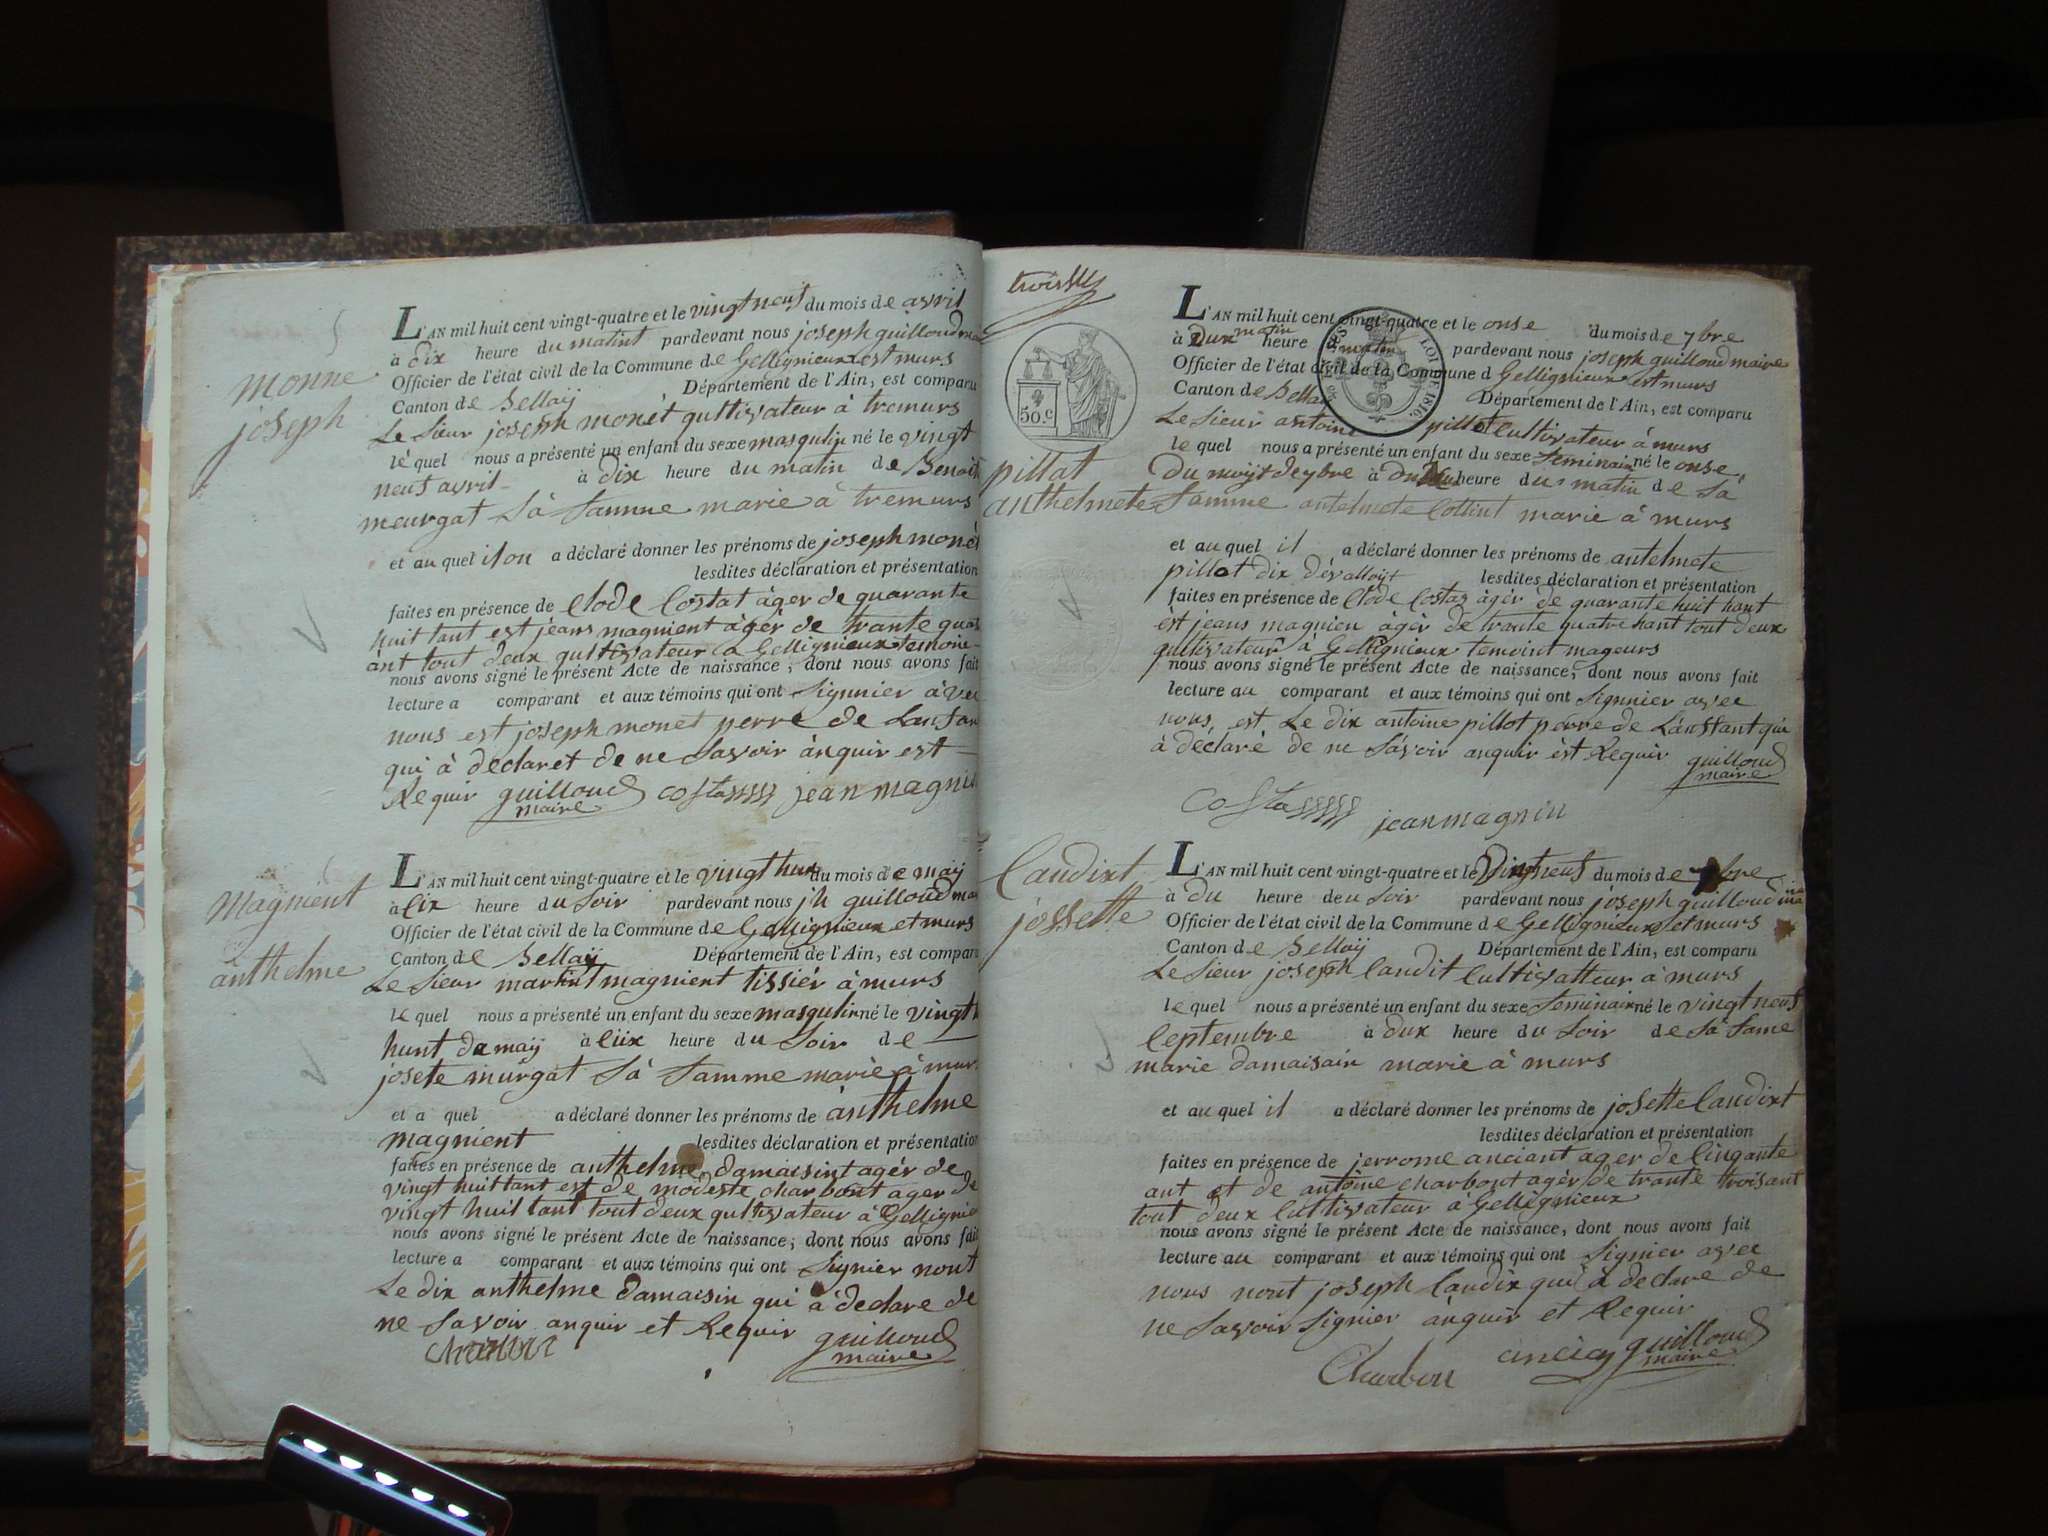 monne
joseph
L'AN mil huit cent vingt-quatre et le vingt neuf du mois de avril
à dix heure du matint pardevant nous joseph guilloud
Officier de l'état civil de la Commune de Gellignieux est murs
Canton de Bellaÿ Département de l'Ain, est comparu
Le sieur joseph monét qultivateur à tremurs
le quel nous a présenté un enfant du sexe masqulin né le vingt
neuf avril à dix heure du matin de Benoit
meurgat sà famme marie à tremurs
et au quel ilon a déclaré donner les prénoms de joseph monét
lesdites déclaration et présentation
faites en présence de Clode Costat àger de quarante
huit tant est jeans magnient àgér de trante quat
ant tout deux qultivateur à Gellignieux temoins
nous avons signé le présent Acte de naissance; dont nous avons fait
lecture a comparant et aux témoins qui ont signnier àvec
nous est joseph monet perre de Lanfan
qui à déclaret de ne savoir ànquir est
Requir guilloud costa jean magnin
maire
magnient
anthelme
L'AN mil huit cent vingt-quatre et le vingt hunt du mois de maÿ
à cix heure du soir pardevant nous jh guilloud
Officier de l'état civil de la Commune de Gellignieux et murs
Canton de Bellaÿ Département de l'Ain, est comparu
Le sieur martint magnient tissiér à murs
le quel nous a présenté un enfant du sexe masqulin né le vingt
hunt de maÿ à ciix heure du soir de
josete murgat sà famme marie à murs
et a quel a déclaré donner les prénoms de ànthelme
magnient lesdites déclaration et présentation
faites en présence de anthelme damaisint agér de
vingt huit tant est de modeste charbont ager de
vingt huit tant tout deux qultivateur à Gellignieu
nous avons signé le présent Acte de naissance; dont nous avons fait
lecture a comparant et aux témoins qui ont signier nont
Le dix anthelme damaisin qui à declare de
ne savoir anquir et Requir guilloud
maire
troisi
50. c
LOI DE 1816.
pillat
anthelmete
L'AN mil huit cent vingt-quatre et le onse du mois de 7bre
à Dux matin heure matin pardevant nous joseph guilloud maire
Officier de l'état civil de la Commune d Gellignieux est murs
Canton de Bellaÿ Département de l'Ain, est comparu
Le sieur antoine pillot Cultivateur à murs
le quel nous a présenté un enfant du sexe feminain né le onse
du moÿt de 7bre à heure du matin de sà
famme antelmete Cottint marie à murs
et au quel il a déclaré donner les prénoms de antelmete
pillot dix lesdites déclaration et présentation
faites en présence de Clode Costaz àgér de quarante huit hant
èst jeans magnien àgèr de trante quatre hant tout deux
qultivateur à Gellignieux temoint mageurs
nous avons signé le présent Acte de naissance, dont nous avons fait
lecture au comparant et aux témoins qui ont signnier avec
nous, est Le dix antoine pillot perre de Lànstant qui
à déclaré de ne sàvoir anquir èst Requir guilloud
maire
costa jean magnin
Candixt
jossette
L'AN mil huit cent vingt-quatre et le vingt neuf du mois de 7bre
à du heure deu soir pardevant nous joseph guilloud
Officier de l'état civil de la Commune de Gellignieux et murs
Canton de Bellaÿ Département de l'Ain, est comparu
Le sieur joseph Candit Cultivatteur à murs
le quel nous a présenté un enfant du sexe feminain né le vingt neuf
Ceptembre à dux heure du soir de sà fame
marie damaisain marie à murs
et au quel il a déclaré donner les prénoms de josette Candixt
lesdites déclaration et présentation
faites en présence de jerrome anciant ager de Cinqante
ant et de antoine charbont agér de trante troisant
tout deux Cultivateur à Gellignieux
nous avons signé le présent Acte de naissance, dont nous avons fait
lecture au comparant et aux témoins qui ont signier avec
nous nont joseph Candix qui à declare de
ne savoir signier ànquir et Requir
ancian guilloud
maire
Charbon